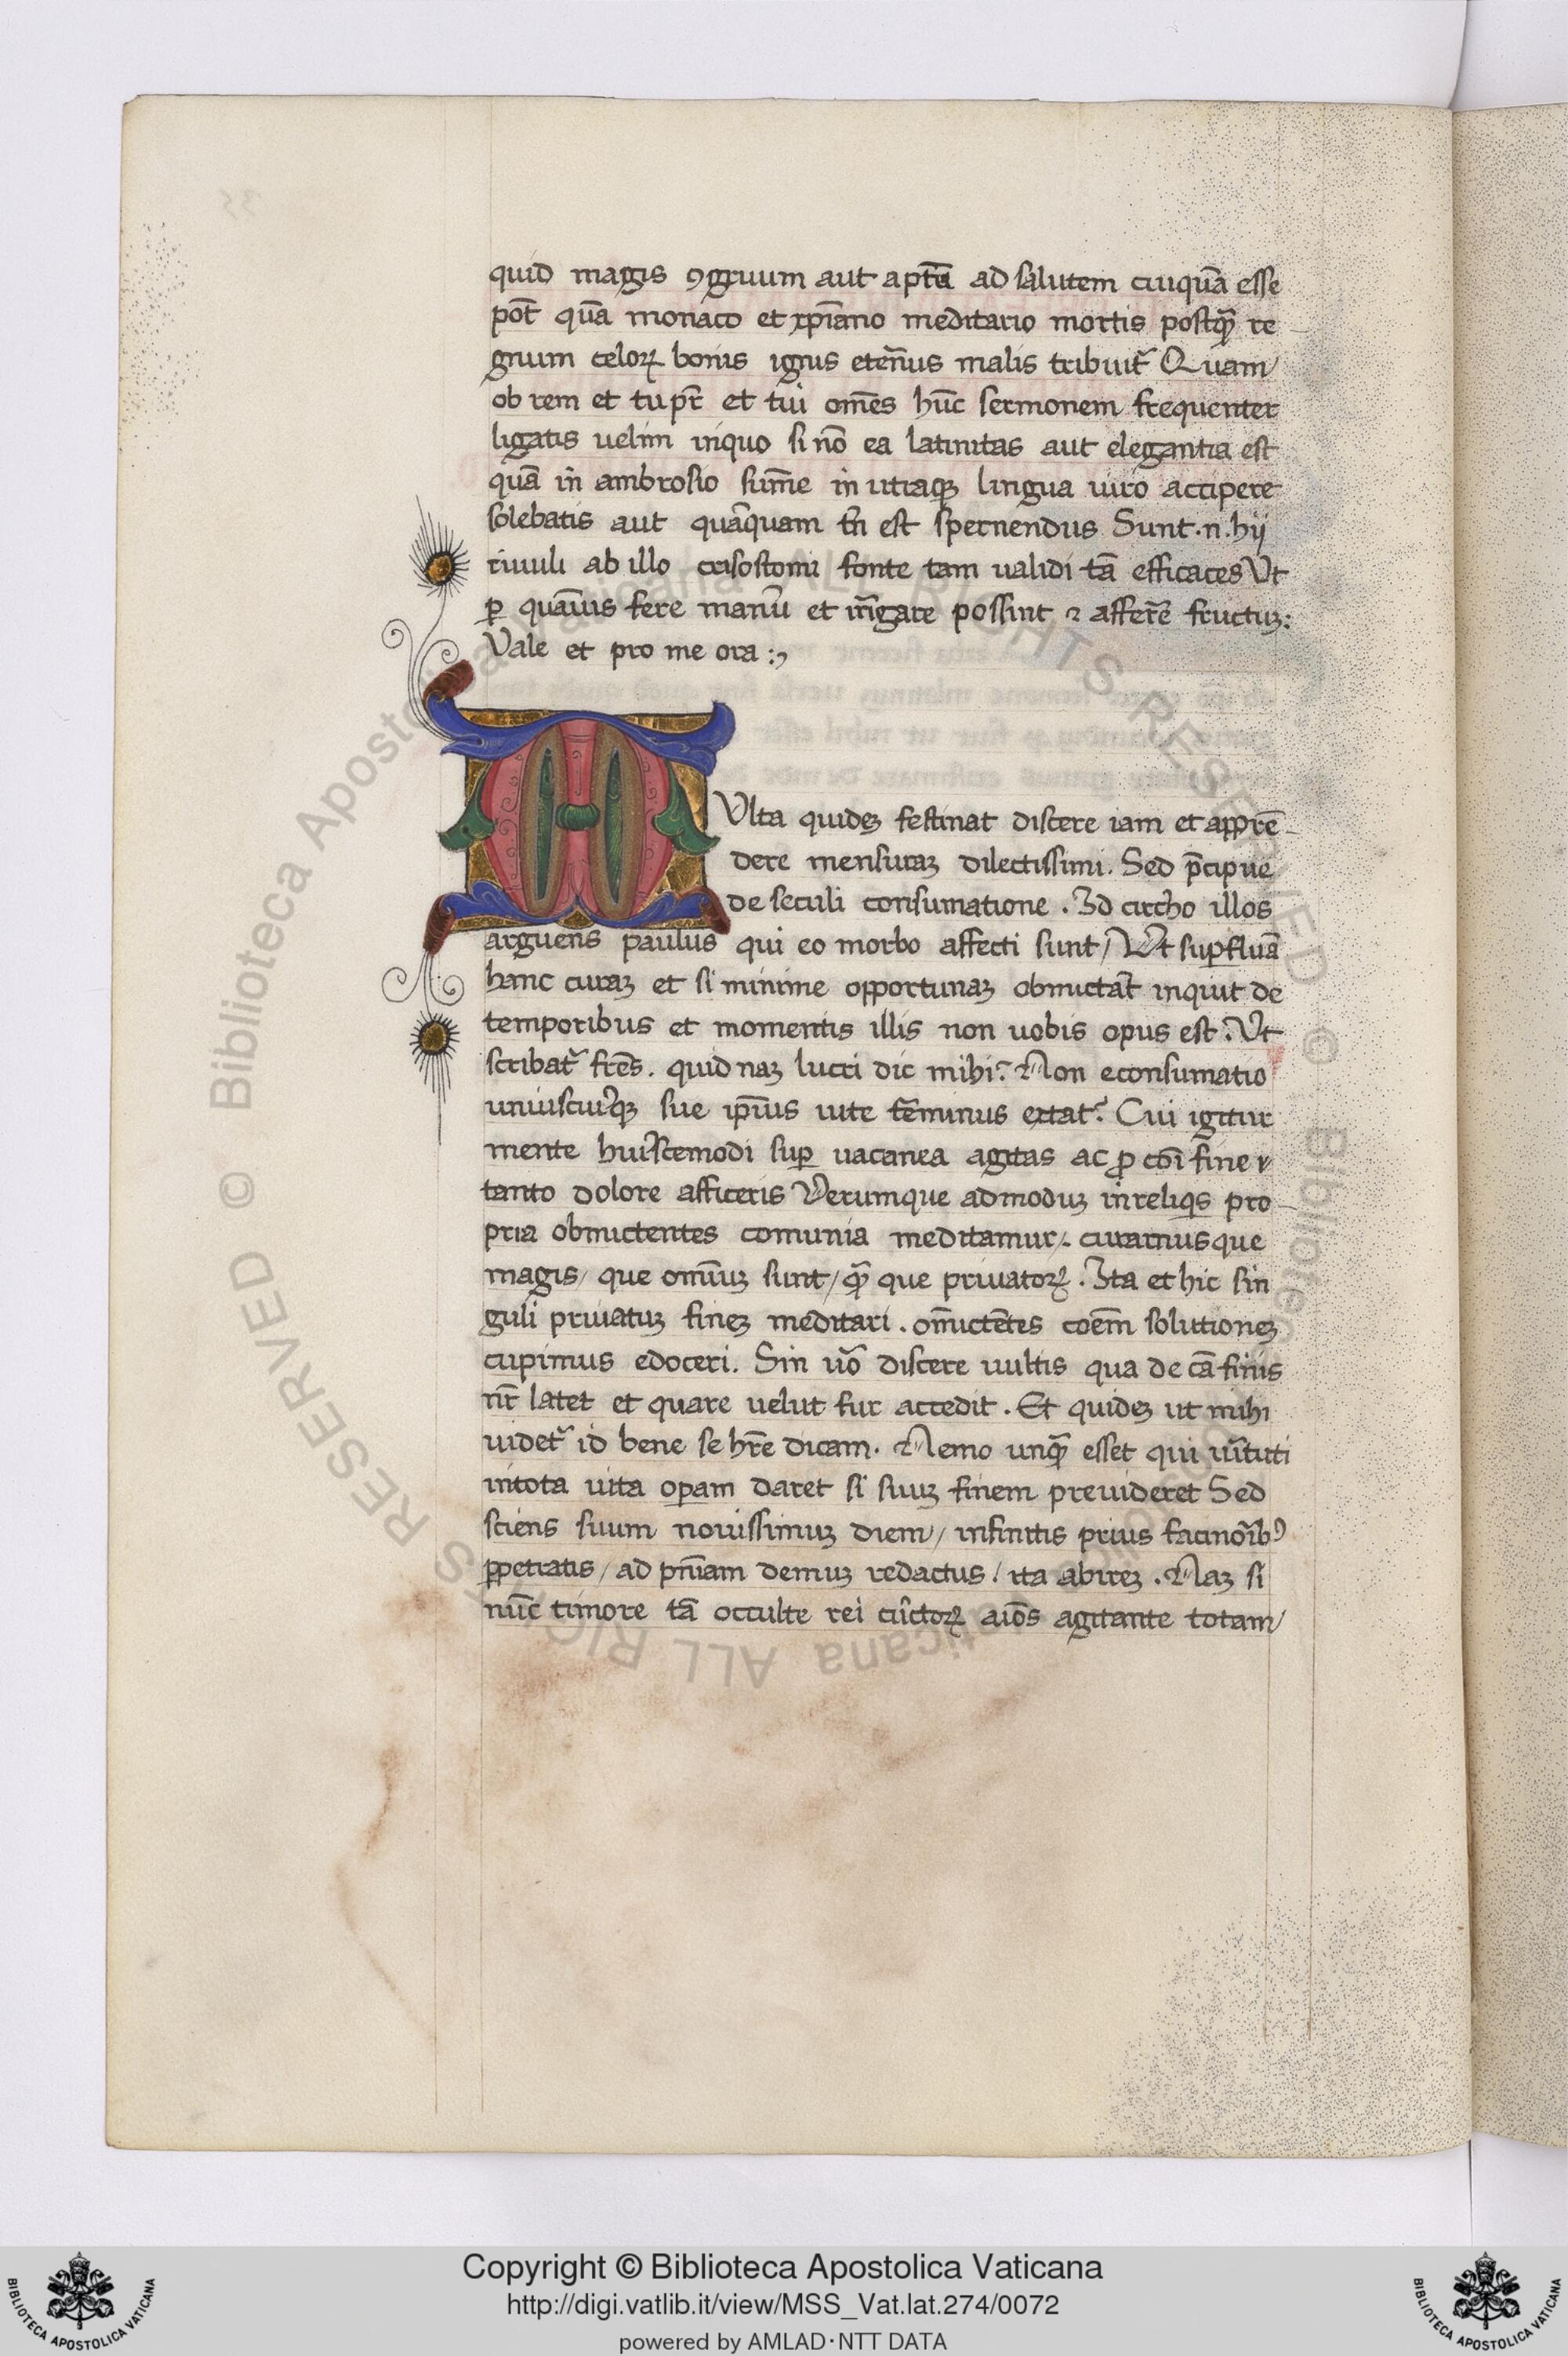 quid magis ꝯgruum aut aptū ad salutem cuiquā esse
pot̄ quā monaco et xp̄iano meditatio mortis postqȝ̄ re
gnum celoꝝ bonis ignis eteñus malis tribuit᷑ Quam/
ob rem et tu pr̄ et tui om̄es hūc sermonem frequenter
ligatis uelim inquo si nō ea latinitas aut elegantia est
quā in ambrosio sum̄e in utraqȝ lingua uiro accipere
solebatis aut quāquam tn̄ est spernendus Sunt .n. hij
riuuli ab illo crisostomi fonte tam ualidi tā efficaces Vt
ꝑ quāuis fere manū et irr̄igare possint ⁊ afferr̄e fructuȝ:
Vale et pro me ora :,
MVlta quideȝ festinat discere iam et appre̅
dere mensuraȝ dilectissimi. Sed p̄cipue
de seculi consumatione . Id circho illos
arguens paulus qui eo morbo affecti sunt/ Vt suꝑfluā
hanc curaȝ et si minime opportunaȝ obmictāt inquit de
temporibus et momentis illis non uobis opus est. Vt
scribat᷑ fr̄es. quid naȝ lucri dic mihi? Non econsumatio
uniuscuiꝰqȝ sue ip̄ius uite t̄minus extat? Cui igitur
mente huiꝰcemodi suꝑ uacanea agitas ac ꝓ cōi fine r
tanto dolore afficeris Verumque admoduȝ inreliqis pro
pria obmictentes comunia meditamur/. curamusque
magis/ que omniūȝ sunt/ qȝ̄ que priuatoꝝ . Ita et hic sin
guli priuatuȝ fineȝ meditari . om̄ictētes coēm solutioneȝ
cupimus edoceri. Sin uō discere uultis qua de cā finis
nr̄ latet et quare uelut fur accedit . Et quideȝ ut mihi
uidet᷑ id bene se hr̄e dicam. Nemo unqȝ̄ esset qui uir̄tuti
intota uita oꝑam daret si suuȝ finem preuideret Sed
sciens suum nouissimuȝ diem/ infinitis prius facinor̄ibꝰ
ꝑpetratis/ ad pn̄iam demuȝ redactus/ ita abireȝ . Naȝ si
nūc timore tā occulte rei cūctoꝝ aīos agitante totam/
Copyright © Biblioteca Apostolica Vaticana
http://digi.vatlib.it/view/MSS_Vat.lat.274/0072
powered by AMLAD·NTT DATA
BIBLIOTECA APOSTOLICA VATICANA
BIBLIOTECA APOSTOLICA VATICANA
© Biblioteca Apostolica Vaticana ALL RIGHTS RESERVED © Biblioteca Apostolica Vaticana ALL RIGHTS RESERVED